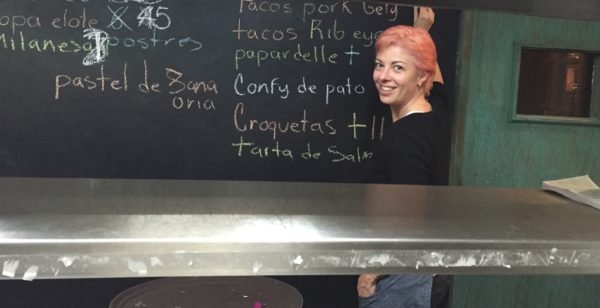 opa elote X 45
Milanesa postres
pastel de Zana
oria
tacos pork
tacos Rib eye
papardelle +
Confy de pato
Croquetas +11
tarta de